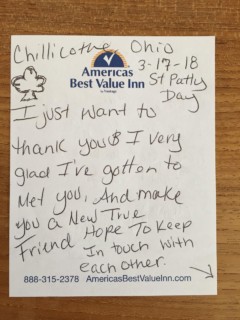 Chillicothe, Ohio
Americas
Best Value Inn
by Vantage
3-17-18
St Pattys
Day
I just want to
thank you & I very
glad I've gotten to
Met you, And make
you a New True
Friend Hope To Keep
In touch with
each other.
888-315-2378 AmericasBestValueInn.com